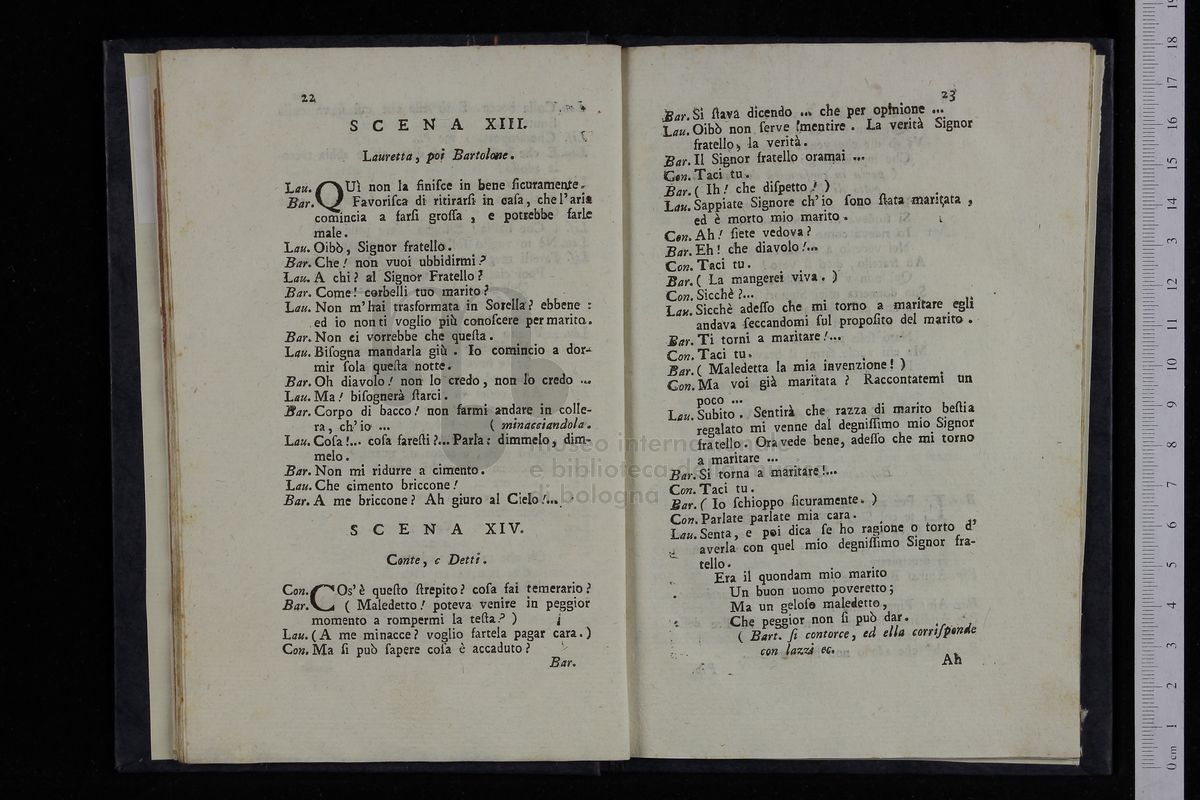 22
SCENA XIII.
Lauretta, poi Bartolone.
Lau. QUì non la finiſce in bene ſicuramente.
Bar. Favoriſca di ritirarſi in caſa, che l'aria
comincia a farſi groſſa, e potrebbe farle
male.
Lau. Oibò, Signor fratello.
Bar. Che! non vuoi ubbidirmi?
Lau. A chi? al Signor Fratello?
Bar. Come! corbelli tuo marito?
Lau. Non m'hai trasformata in Sorella? ebbene:
ed io non ti voglio più conoſcere per marito.
Bar. Non ci vorrebbe che queſta.
Lau. Biſogna mandarla giù. Io comincio a dor-
mir ſola queſta notte.
Bar. Oh diavolo! non lo credo, non lo credo ...
Lau. Ma! biſognerà ſtarci.
Bar. Corpo di bacco! non farmi andare in colle-
ra, ch'io ... (minacciandola.
Lau. Coſa!... coſa fareſti?... Parla: dimmelo, dim-
melo.
Bar. Non mi ridurre a cimento.
Lau. Che cimento briccone!
Bar. A me briccone? Ah giuro al Cielo!...
SCENA XIV.
Conte, e Detti.
Con. COs'è queſto ſtrepito? coſa fai temerario?
Bar. (Maledetto! poteva venire in peggior
momento a rompermi la teſta?)
Lau. (A me minacce? voglio fartela pagar cara.)
Con. Ma ſi può ſapere coſa è accaduto?
Bar.
23
Bar. Si ſtava dicendo ... che per opinione ...
Lau. Oibò non ſerve ſmentire. La verità Signor
fratello, la verità.
Bar. Il Signor fratello oramai ...
Con. Taci tu.
Bar. (Ih! che diſpetto!)
Lau. Sappiate Signore ch'io ſono ſtata maritata,
ed è morto mio marito.
Con. Ah! ſiete vedova?
Bar. Eh! che diavolo!...
Con. Taci tu.
Bar. (La mangerei viva.)
Con. Sicchè?...
Lau. Sicchè adeſſo che mi torno a maritare egli
andava ſeccandomi ſul propoſito del marito.
Bar. Ti torni a maritare!...
Con. Taci tu.
Bar. (Maledetta la mia invenzione!)
Con. Ma voi già maritata? Raccontatemi un
poco ...
Lau. Subito. Sentirà che razza di marito beſtia
regalato mi venne dal degniſſimo mio Signor
fratello. Ora vede bene, adeſſo che mi torno
a maritare ...
Bar. Si torna a maritare!...
Con. Taci tu.
Bar. (Io ſchioppo ſicuramente.)
Con. Parlate parlate mia cara.
Lau. Senta, e poi dica ſe ho ragione o torto d'
averla con quel mio degniſſimo Signor fra-
tello.
Era il quondam mio marito
Un buon uomo poveretto;
Ma un geloſo maledetto,
Che peggior non ſi può dar.
(Bart. ſi contorce, ed ella corriſponde
con lazzi ec.
Ah
museo internazionale
e biblioteca della musica
di bologna
0 cm 1 2 3 4 5 6 7 8 9 10 11 12 13 14 15 16 17 18 19